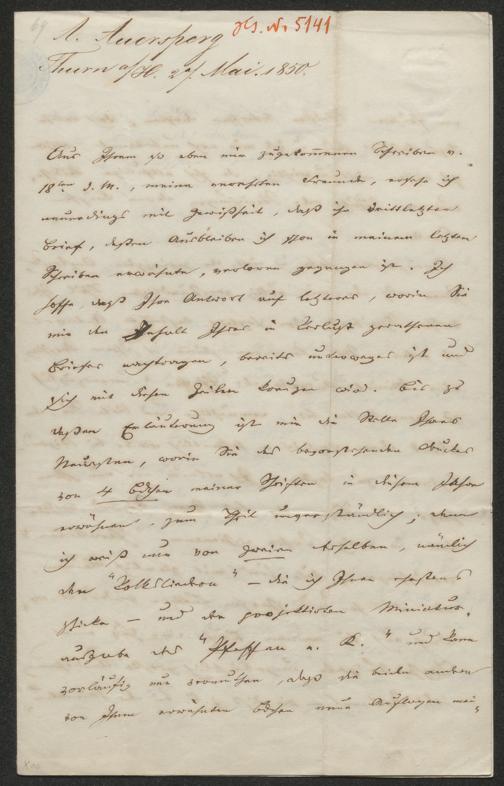 69
A. Auersperg
Hs. N. 5141
Thurn a/H. 27 Mai. 1850.
Aus Ihrem so eben mir zugekommenen Schreiben v.
18ten d. M., meine verehrten Freunde, ersehe ich
neuerdings mit Gewißheit, daß ihr drittletzter
Brief, dessen Ausbleiben ich schon in meinem letzten
Schreiben erwähnte, verloren gegangen ist. Ich
hoffe, daß Ihre Antwort auf letzteres, worin Sie
mir den Inhalt Ihres in Verlust gerathenen
Briefes nachtragen, bereits unterweges ist und
sich mit diesen Zeilen kreuzen wird. Bis zu
dessen Erläuterung ist mir die Stelle Ihres
Neuesten, worin Sie des bevorstehenden Druckes
von 4 Bdchen meiner Schriften in diesem Jahre
erwähnen, zum Theil unverständlich; denn
ich weiß nur von zweien derselben, nämlich
den "Volksliedern" – die ich Ihnen ehestens
schicke – und der projektirten Miniatur-
ausgabe des "Pfaffen v. K." und kann
vorläufig nur vermuthen, daß die beiden andern
von Ihnen erwähnten Bdchen neue Auflagen mei-